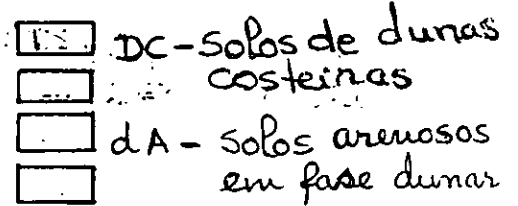 DC - Solos de dunas
costeiras
dA - Solos arenosos
em fase dunar